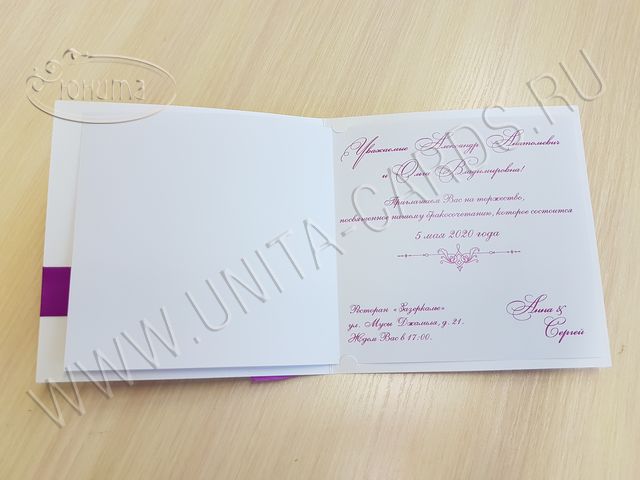 Юнита
Уважаемые Александр Анатольевич
и Ольга Владимировна!
Приглашаем Вас на торжество,
посвященное нашему бракосочетанию, которое состоится
5 мая 2020 года
Ресторан «Зазеркалье»
ул. Мусы Джалиля, д. 21.
Ждем Вас в 17:00.
Анна &
Сергей
WWW.UNITA-CARDS.RU